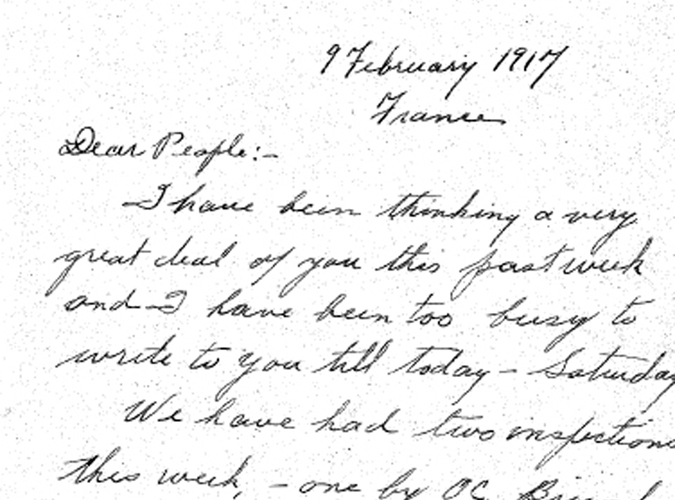 9 February 1917
France
Dear People:-
I have been thinking a very
great deal of you this past week
and I have been too busy to
write to you till today - Saturday
We have had two inspections
this week, - one by OC